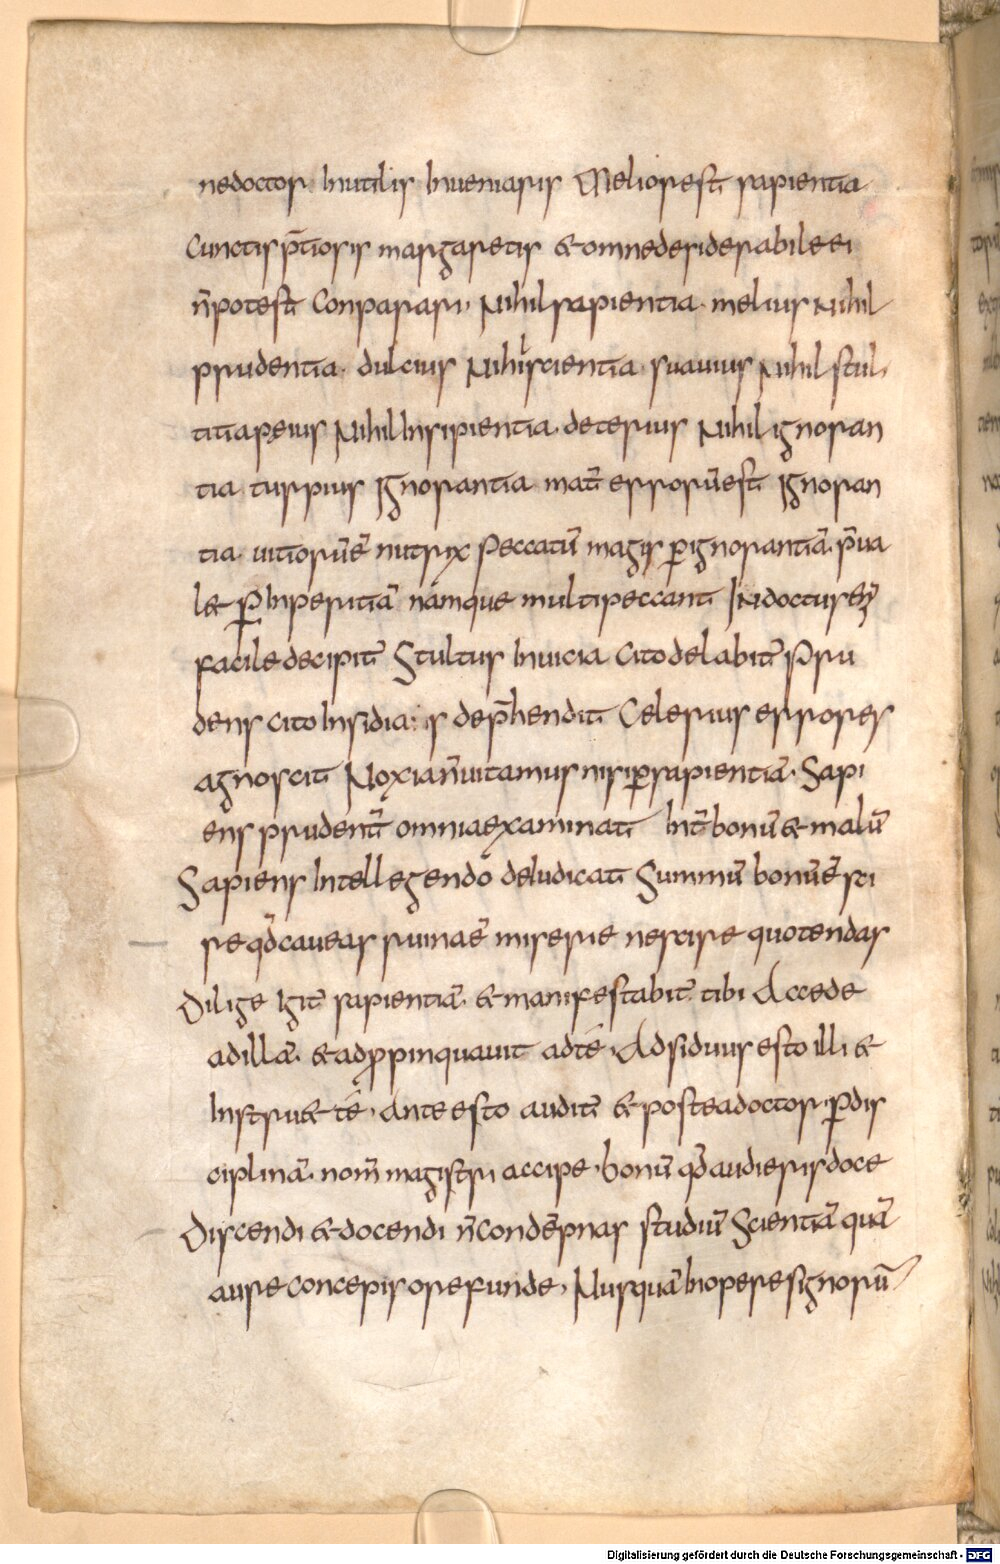 nedoctor. Inutilis Inueniaris Melior est̅ sapientia
Cunctis p̅tiosis margaretis & omnedesiderabile ei
n̅ potest̅ Conparari, Nihil sapientia. melius Nihil
prudentia. dulcius Nihil scientia. suauius Nihil stul,
titia peius Nihil Insipientia. deterius Nihil ignoran
tia. turpius Ignorantia mat̅ erroru̅ est̅ Ignoran
tia. uitioru̅ e̅ nutrix Peccatu̅ magis ꝑignorantia̅. p̅ua
l& ꝑ Inperitia̅ namque multi peccant Indoctus e̅ı̅ȝ
facile decipit̅ Stultus Inuicia Cito delabit̅ Pru
dens cito Insidia: is dep̅hendit Celerius errores
agnoscit Noxia n̅ uitamus nisi ꝑ sapientia̅. Sapi
ens prudent̅ omnia examinat Int̅ bonu̅ & malu̅
Sapiens Intellegendo deIudicat Summu̅ bonu̅ e̅ sci
re qd̅ caueas summae̅ miserie nescire quo tendas
Dilige Igit̅ sapientia̅. & manifestabit̅ tibi Accede
ad illa̅. & adꝓpinquauit ad te Adsiduus esto illi &
Instru& te. Ante esto audit̅ & postea doctor. ꝑ dis
ciplina̅. nom̅ magistri accipe. bonu̅ qd̅ audieris doce
Discendi & docendi n̅ Conde̅pnas studiu̅ Scientia̅ qua̅
aure concepis ore funde, Nusqua̅ In opere signoru̅
Digitalisierung gefördert durch die Deutsche Forschungsgemeinschaft - DFG